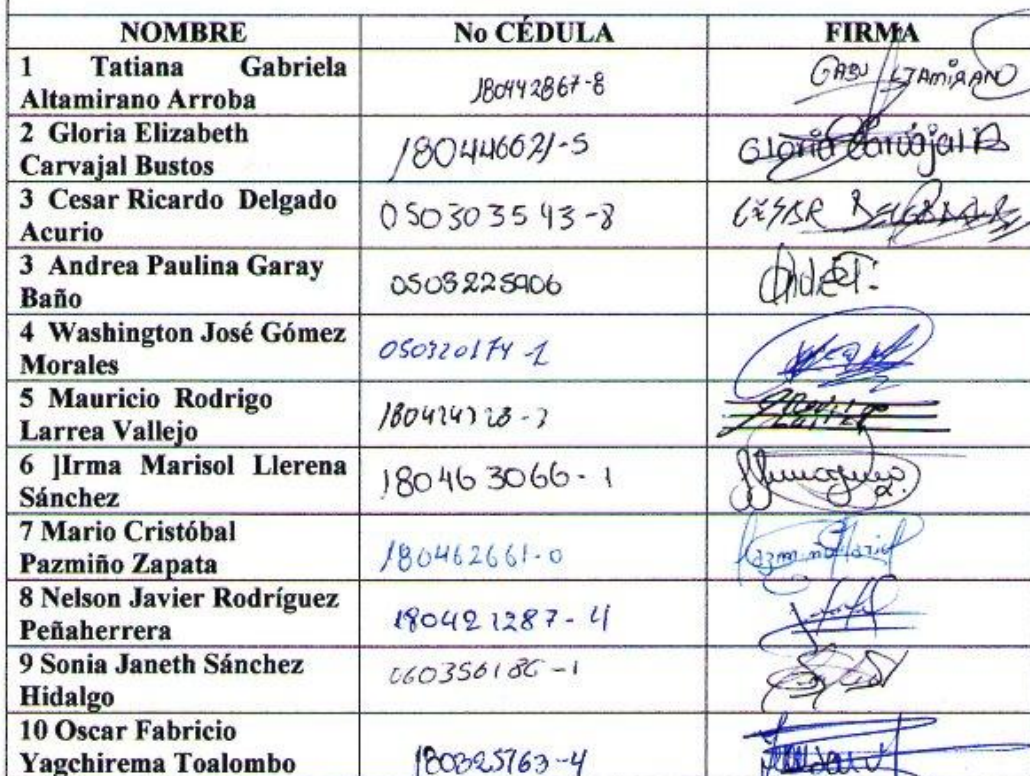 NOMBRE No CÉDULA FIRMA
1 Tatiana Gabriela
Altamirano Arroba 180442867-8 GABY ALTAMIRANO
2 Gloria Elizabeth
Carvajal Bustos 180446621-5 Gloria Carvajal B
3 Cesar Ricardo Delgado
Acurio 050303543-8 CÉSAR DELGADO
3 Andrea Paulina Garay
Baño 0503225906
4 Washington José Gómez
Morales 050320174-1
5 Mauricio Rodrigo
Larrea Vallejo
6 ]Irma Marisol Llerena
Sánchez 180463066-1
7 Mario Cristóbal
Pazmiño Zapata 180462661-0 Pazmiño Mario
8 Nelson Javier Rodríguez
Peñaherrera 180421287-4
9 Sonia Janeth Sánchez
Hidalgo
10 Oscar Fabricio
Yagchirema Toalombo 180325763-4